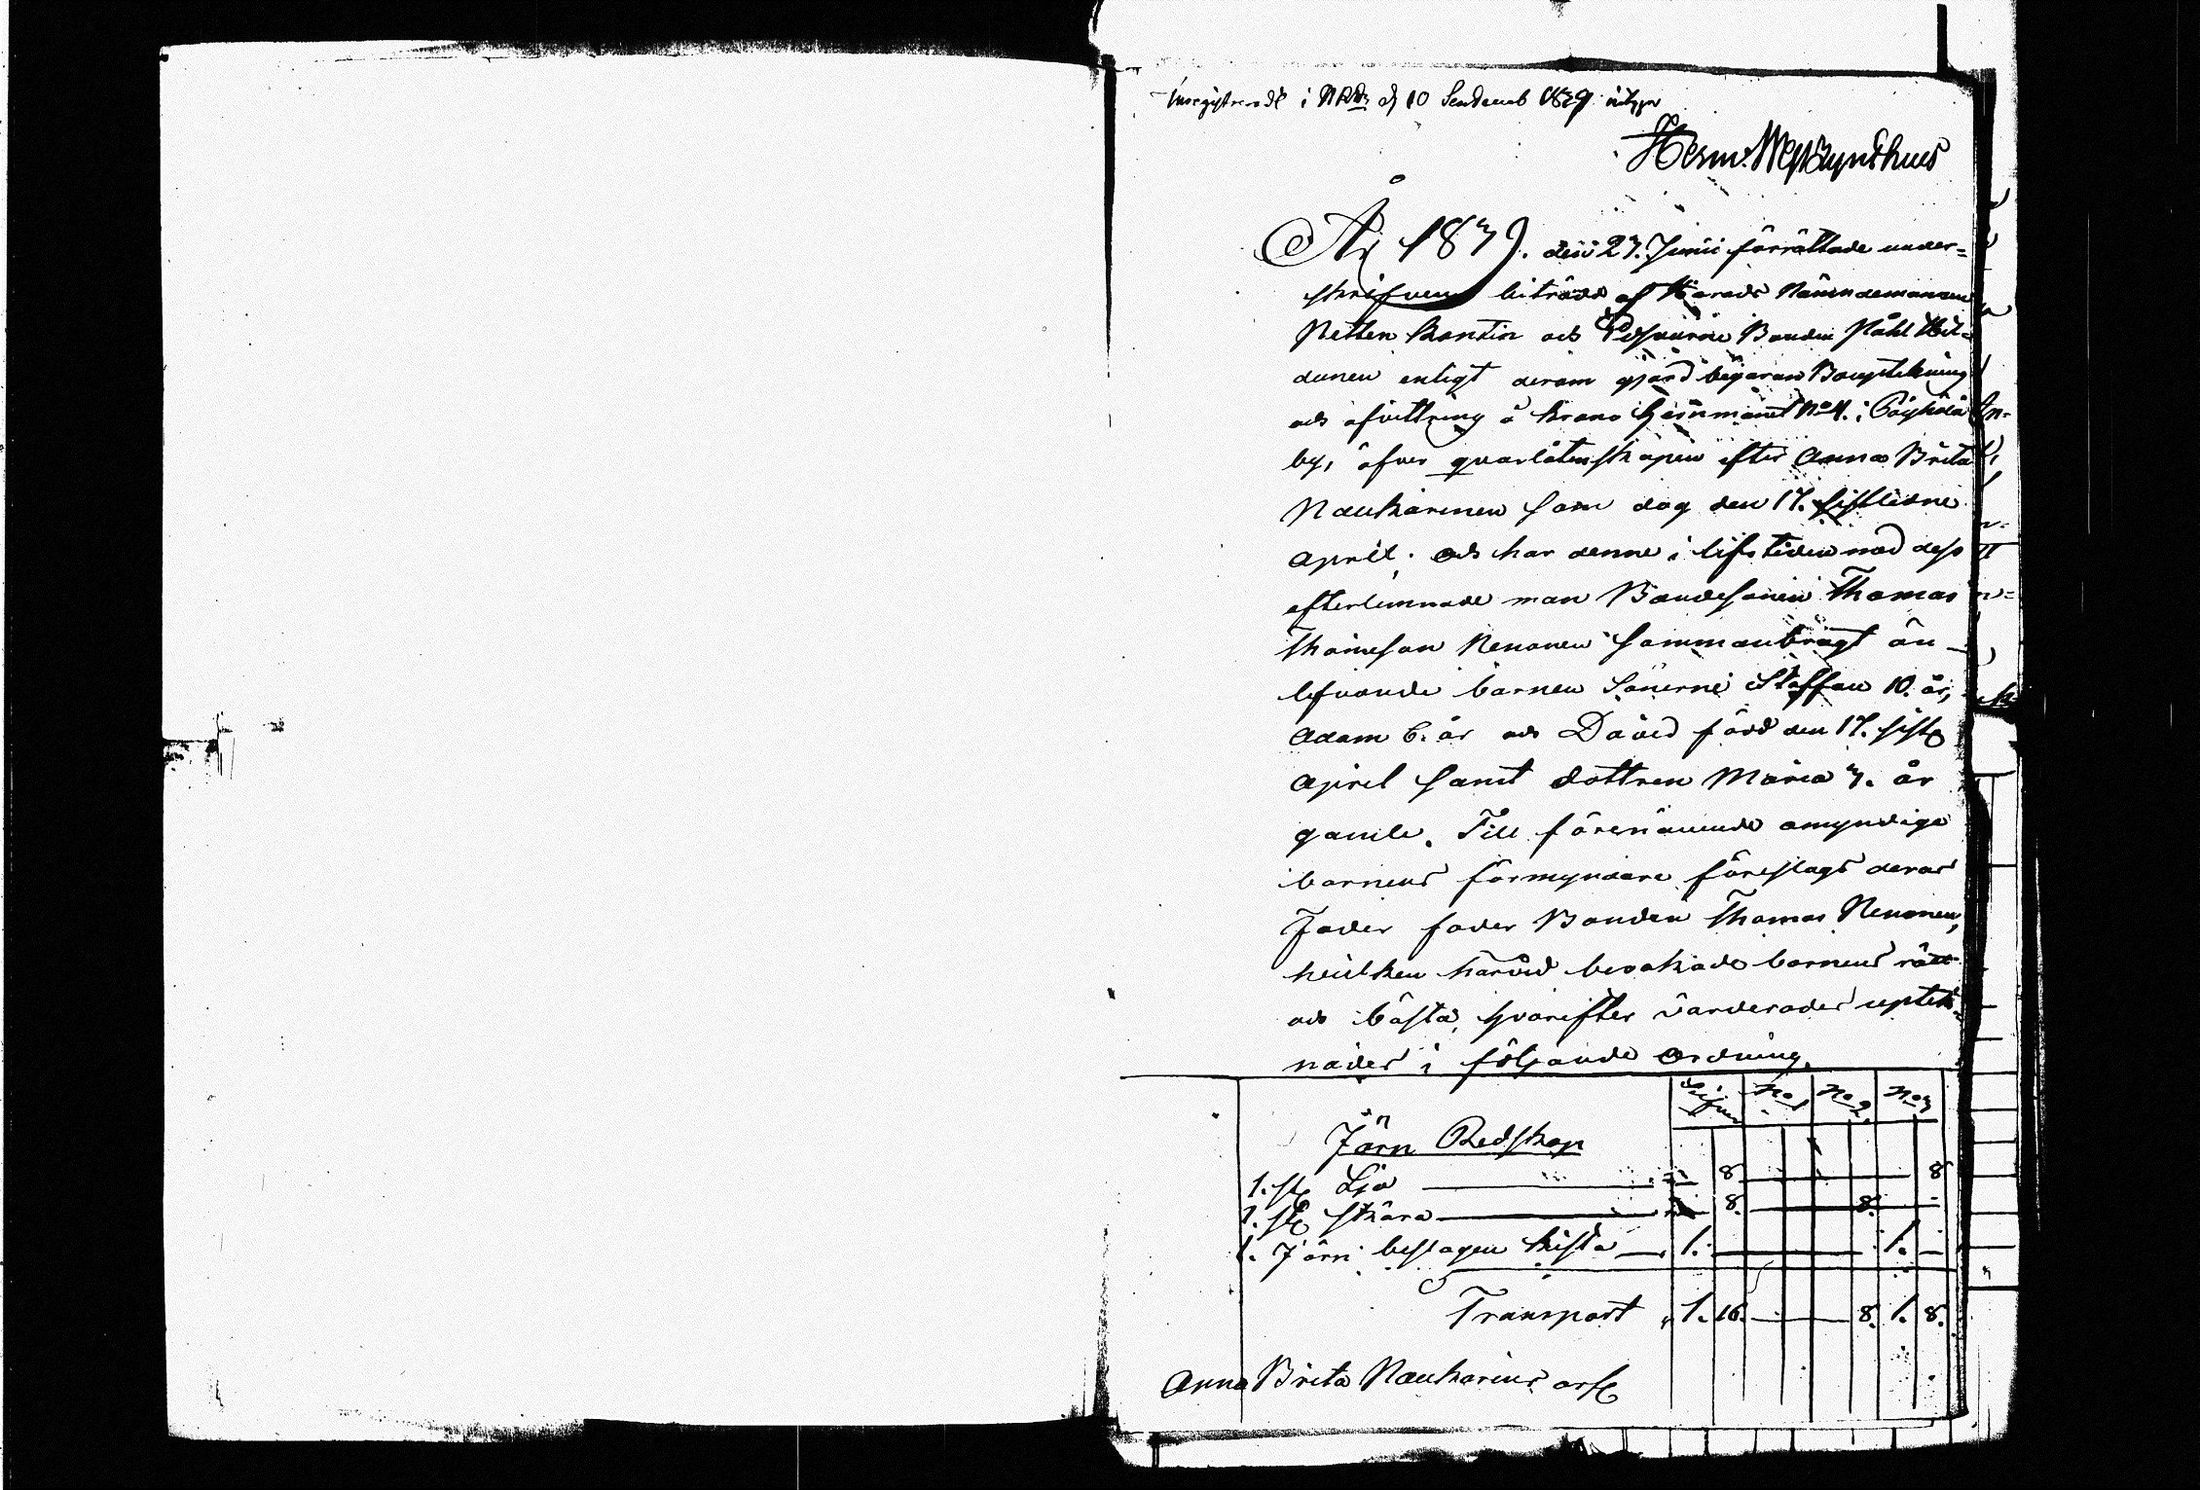 i d 10 1839
Herm.
År 1839. den 27. Junii förrättade under=
skrifven biträdd af Härads Nämndemannen
Petter Kontin och Bonden Påhl Hil=
dunen enligt derom gjord begäran Bouptekning
och afvittring å Krono Hemmanet No 4. i
by, öfver qvarlåtenskapen efter Anna Brita
Naukarinen som dog den 17. sistledne
April. och har denne i lifstiden med dess
efterlemnade man Bondesonen Thomas
Thomeson Nenonen sammanbragt än
lefvande barnen Sönerne Staffan 10. år,
Adam 6. år och David född den 17. sistl.
April samt dottren Maria 3. år
gamle. Till förenämnde omyndige
barnens förmyndare föreslags deras
Fader fader Bonden Thomas Nenonen,
hvilken härvid bevakade barnens rätt
och bästa, hvarefter värderades uptek=
nades i följande ordning.
No 1 No 2 No 3
Järn Redskap
1. st. Lja 8. 8
1. st. skära 8. 8. -
1. Järn beslagen kista 1. 1. -
Transport 1. 16. 8. 1. 8.
Anna Brita Naukarins